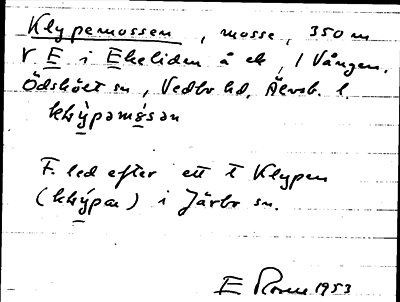 Klypemossen, mosse, 350 m
V E i Ekeliden å ek, i Vången.
Ödskölt sn, Vedbo hd, Älvsb. l.
khỳpəmòsən
F. led efter ett t Klypen
(khýpən) i Järbo sn.
E Rosell 1953